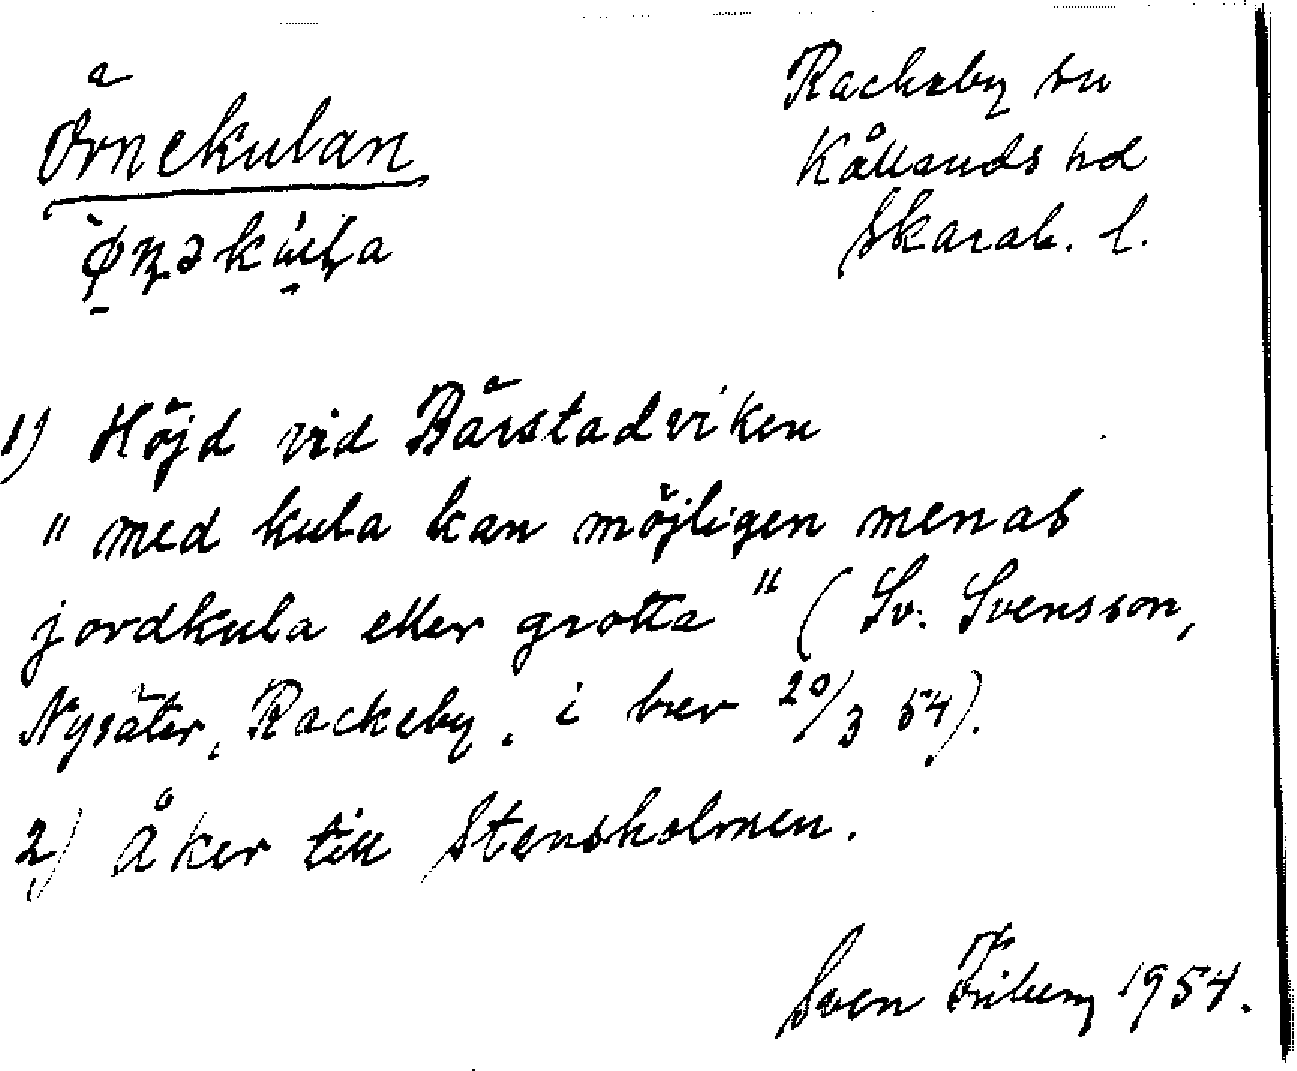 Örnekulan
Rackeby sn
Kållands hd
Skarab. l.
1) Höjd vid Bärstadviken
" med kula kan möjligen menas
jordkula eller grotta " ( Sv. Svensson,
Nysäter, Rackeby, i brev 20/3 54).
2) Åker till Stensholmen.
Sven Friberg 1954.